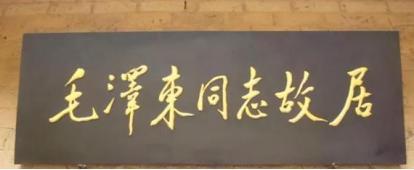 毛澤东同志故居